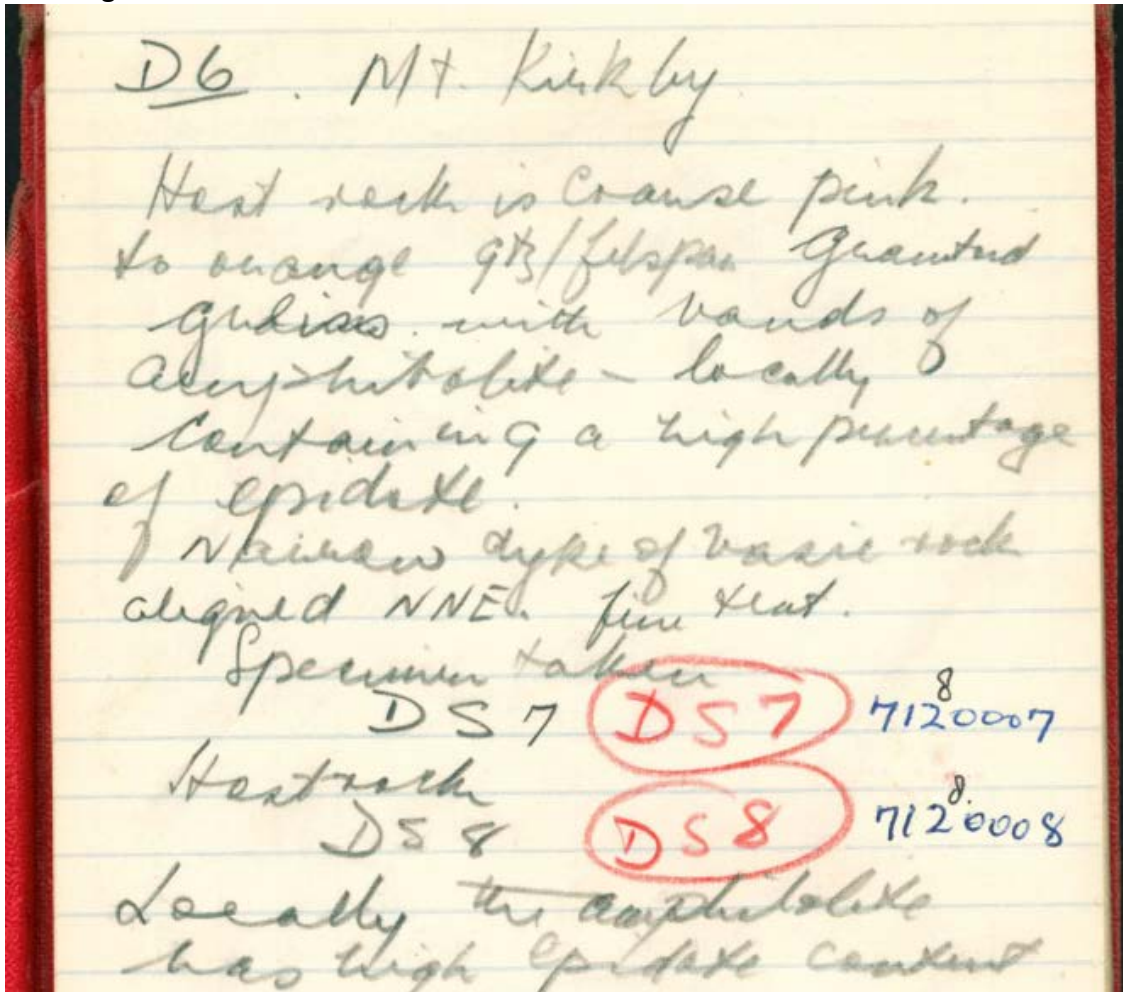 D6. Mt. Kirkby
Host rock is coarse pink.
to orange qtz/felspar Granitoid
gneiss with bands of
amphibolite – locally
containing a high percentage
of epidote.
Narrow dyke of basic rock
aligned NNE. fine text.
Specimen taken
8
DS7 DS7 7120007
Host rock
8.
DS8 DS8 7120008
Locally the amphibolite
has high epidote content